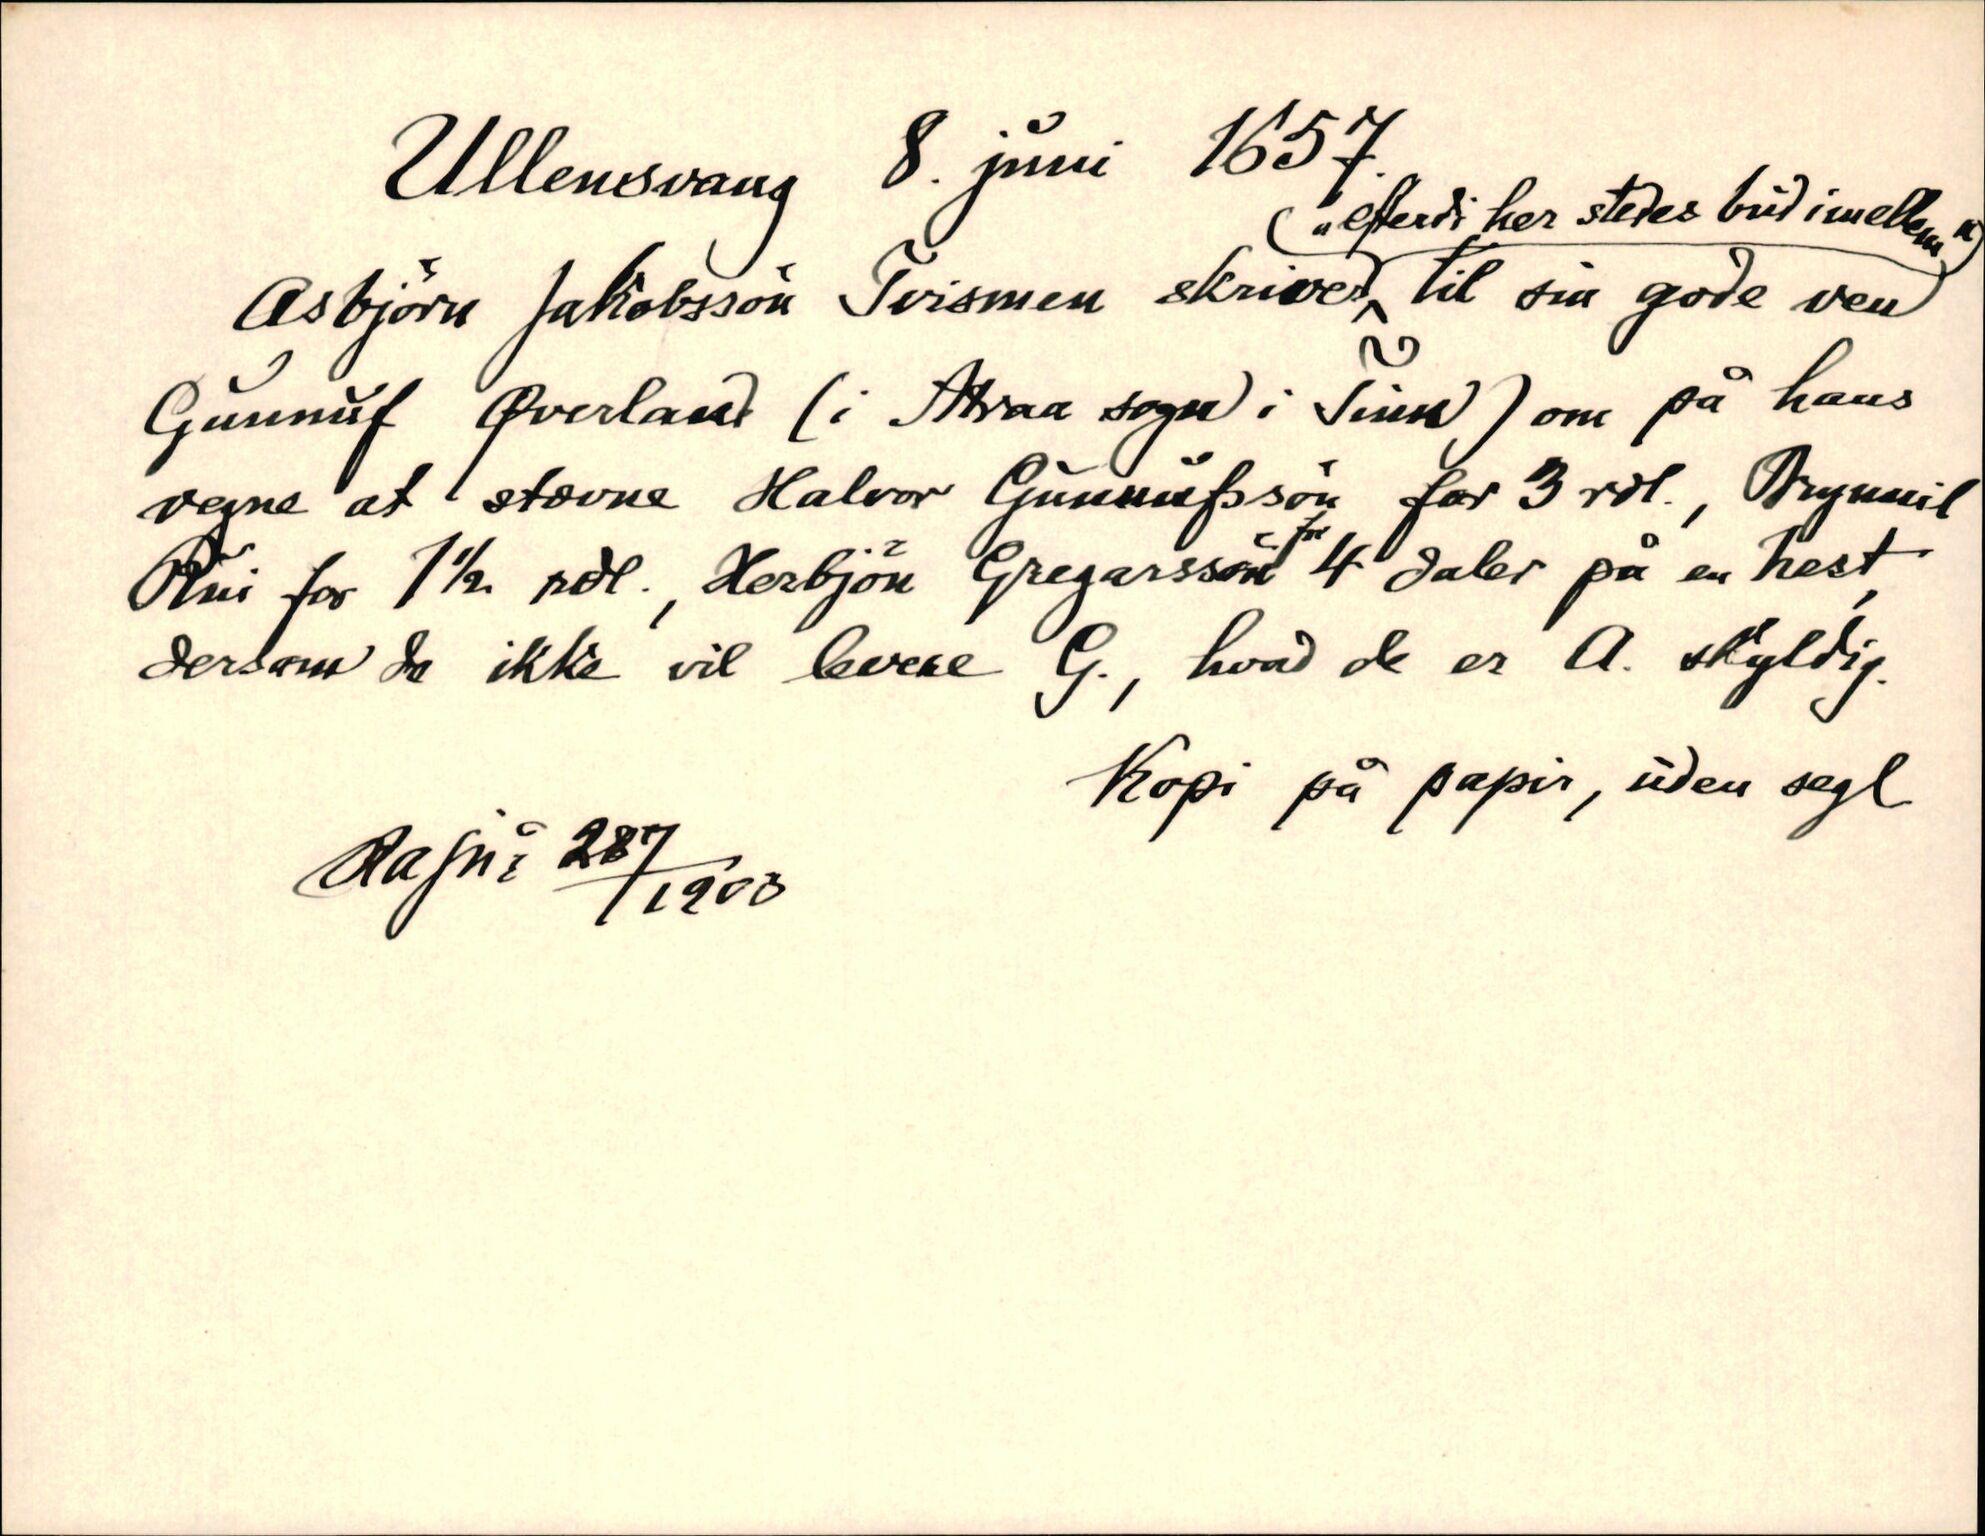 Ullensvang 8. juni 1657.
("efterdi her stedes bud imellem")
Asbjörn Jakobssön Tvismen skriver til sin gode ven
Gunnuf Øverland (i Atraa sogn i Tinn) om på hans
vegne at stævne Halvor Gunnufssön for 3 rdl., Brynnil
Rui for 1 1/2 rdl., Herbjön Gregarssön for 4 daler på en hest,
dersom de ikke vil levere G., hvad de er A. skyldig.
Kopi på papir, uden segl
287/1903